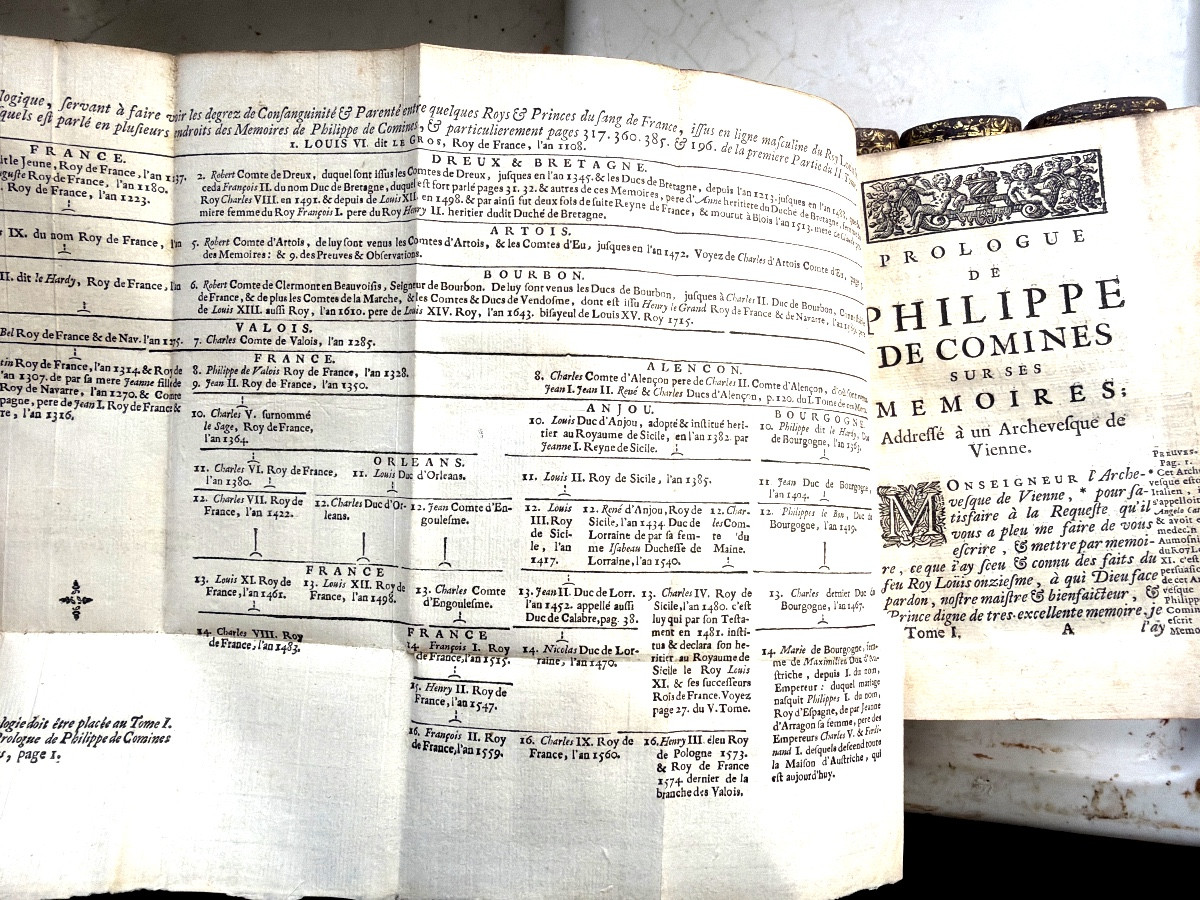 logique, ſervant à faire voir les degrez de Conſanguinité & Parenté entre quelques Roys & Princes du ſang de France, iſſus en ligne maſculine du Roy
quels eſt parlé en pluſieurs endroits des Memoires de Philippe de Comines, & particulierement pages 317. 360. 385. & 196. de la premiere Partie du II Tome.
1. LOUIS VI. dit LE GROS, Roy, l'an 1108.
FRANCE.
it le Jeune, Roy de France, l'an 1137.
guſte Roy de France, l'an 1180.
Roy de France, l'an 1223.
DREUX & BRETAGNE.
2. Robert Comte de Dreux, duquel ſont iſſus les Comtes de Dreux, juſques en l'an 1345. & les Ducs de Bretagne, depuis l'an 1213. juſques en l'an
ceda François II. du nom Duc de Bretagne, duquel eſt fort parlé pages 31. 32. & autres de ces Memoires, pere d'Anne heritiere du Duché de Bretagne,
Roy Charles VIII. en 1491. & depuis de Louis XII. en 1498. & par ainſi fut deux fois de ſuite Reyne de France, & mourut à Blois l'an 1513. mere de
miere femme du Roy François I. pere du Roy Henry II. heritier dudit Duché de Bretagne.
IX. du nom Roy de France, l'an
ARTOIS.
5. Robert Comte d'Artois, de luy ſont venus les Comtes d'Artois, & les Comtes d'Eu, juſques en l'an 1472. Voyez de Charles d'Artois Comte d'Eu,
des Memoires: & 9. des Preuves & Obſervations.
II. dit le Hardy, Roy de France, l'an
BOURBON.
6. Robert Comte de Clermont en Beauvoiſis, Seigneur de Bourbon. De luy ſont venus les Ducs de Bourbon, juſques à Charles II. Duc de Bourbon,
de France, & de plus les Comtes de la Marche, & les Comtes & Ducs de Vendoſme, dont eſt iſſu Henry le Grand Roy de France & de Navarre, l'an
de Louis XIII. auſſi Roy, l'an 1610. pere de Louis XIV. Roy, l'an 1643. biſayeul de Louis XV. Roy 1715.
Bel Roy de France & de Nav. l'an 1275.
VALOIS.
7. Charles Comte de Valois, l'an 1285.
tin Roy de France, l'an 1314. & Roy de
l'an 1307. de par ſa mere Jeanne fille de
Roy de Navarre, l'an 1270. & Comte
pagne, pere de Jean I. Roy de France &
re, l'an 1316.
FRANCE.
8. Philippe de Valois Roy de France, l'an 1328.
9. Jean II. Roy de France, l'an 1350.
ALENCON.
8. Charles Comte d'Alençon pere de Charles II. Comte d'Alençon, d'où ſont
Jean I. Jean II. René & Charles Ducs d'Alençon, p. 120. du I. Tome
10. Charles V. ſurnommé
le Sage, Roy de France,
l'an 1364.
ANJOU.
10. Louis Duc d'Anjou, adopté & inſtitué heri-
tier au Royaume de Sicile, en l'an 1382. par
Jeanne I. Reyne de Sicile.
BOURGOGNE.
10. Philippe dit le Hardy, Duc
de Bourgogne, l'an 1363.
11. Charles VI. Roy de France,
l'an 1380.
ORLEANS.
11. Louis Duc d'Orleans.
11. Louis II. Roy de Sicile, l'an 1385.
11. Jean Duc de Bourgogne,
l'an 1404.
12. Charles VII. Roy de
France, l'an 1422.
12. Charles Duc d'Or-
leans.
12. Jean Comte d'En-
gouleſme.
12. Louis
III. Roy
de Sici-
le, l'an
1417.
12. René d'Anjou, Roy de
Sicile, l'an 1434. Duc de
Lorraine de par ſa fem-
me Iſabeau Ducheſſe de
Lorraine, l'an 1540.
12. Char-
les Com-
te du
Maine.
12. Philippes le Bon, Duc de
Bourgogne, l'an 1419.
FRANCE
13. Louis XI. Roy de
France, l'an 1461.
13. Louis XII. Roy de
France, l'an 1498.
13. Charles Comte
d'Engouleſme.
13. Jean II. Duc de Lorr.
l'an 1452. appellé auſſi
Duc de Calabre, pag. 38.
13. Charles IV. Roy de
Sicile, l'an 1480. c'eſt
luy qui par ſon Teſta-
ment en 1481. inſti-
tua & declara ſon he-
ritier au Royaume de
Sicile le Roy Louis
XI. & ſes ſucceſſeurs
Rois de France. Voyez
page 27. du V. Tome.
13. Charles dernier Duc de
Bourgogne, l'an 1467.
14. Charles VIII. Roy
de France, l'an 1483.
FRANCE
14. François I. Roy
de France, l'an 1515.
14. Nicolas Duc de Lor-
raine, l'an 1470.
14. Marie de Bourgogne, fem-
me de Maximilien Duc d'Au-
ſtriche, depuis I. du nom,
Empereur: duquel mariage
naſquit Philippes I. du nom,
Roy d'Eſpagne, de par Jeanne
d'Arragon ſa femme, pere des
Empereurs Charles V. & Ferdi-
nand I. deſquels deſcend toute
la Maiſon d'Auſtriche, qui
eſt aujourd'huy.
15. Henry II. Roy de
France, l'an 1547.
16. François II. Roy
de France, l'an 1559.
16. Charles IX. Roy de
France, l'an 1560.
16. Henry III éleu Roy
de Pologne 1573.
& Roy de France
1574 dernier de la
branche des Valois.
logie doit être placée au Tome I.
Prologue de Philippe de Comines
s, page 1.
PROLOGUE
DE
PHILIPPE
DE COMINES
SUR SES
MEMOIRES;
Addreſſé à un Archeveſque de
Vienne.
MONSEIGNEUR l'Arche-
veſque de Vienne, * pour ſa-
tisfaire à la Requeſte qu'il
vous a pleu me faire de vous
eſcrire, & mettre par memoi-
re, ce que i'ay ſceu & connu des faits du
feu Roy Loüis onzieſme, à qui Dieu face
pardon, noſtre maiſtre & bienfaiƈteur, &
Prince digne de tres-excellente memoire, je
Tome I. A l'ay
PREUVES.
Pag. 1.
* Cet Arch
veſque eſto
Italien,
s'appelloit
Angelo Cat
& avoit e
medecin
Aumoſni
du Roy L
XI. c'eſt
perſuaſio
de cet A
veſque
Philipp
Comin
eſcrit
Memo